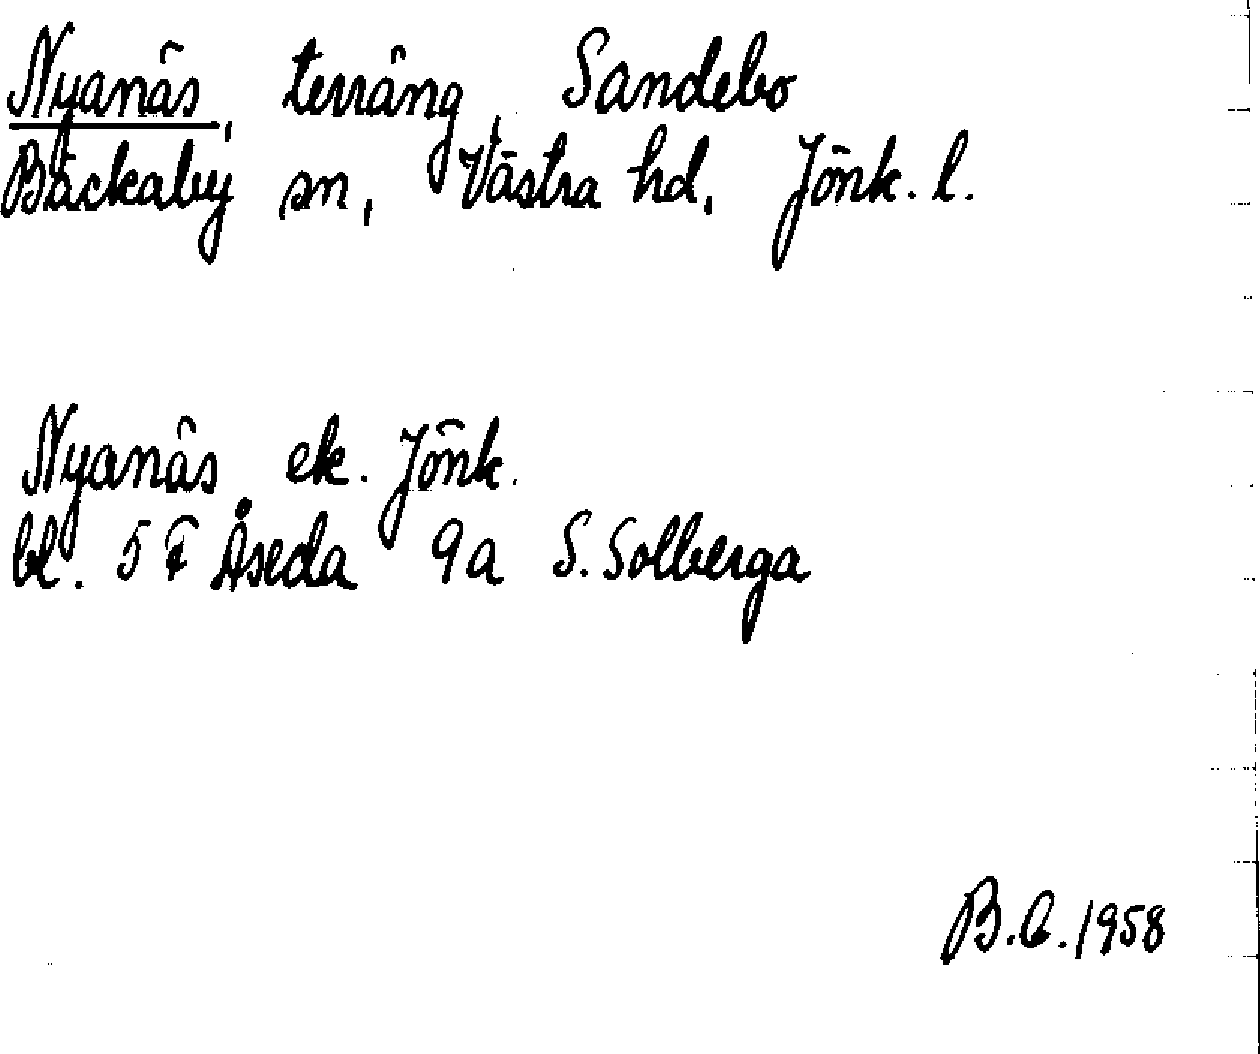 Nyanäs, terräng, Sandebo
Bäckaby sn, Västra hd, Jönk. l.
Nyanäs, ek. Jönk.
bl. 5 F Åseda 9a S. Solberga
B.C. 1958